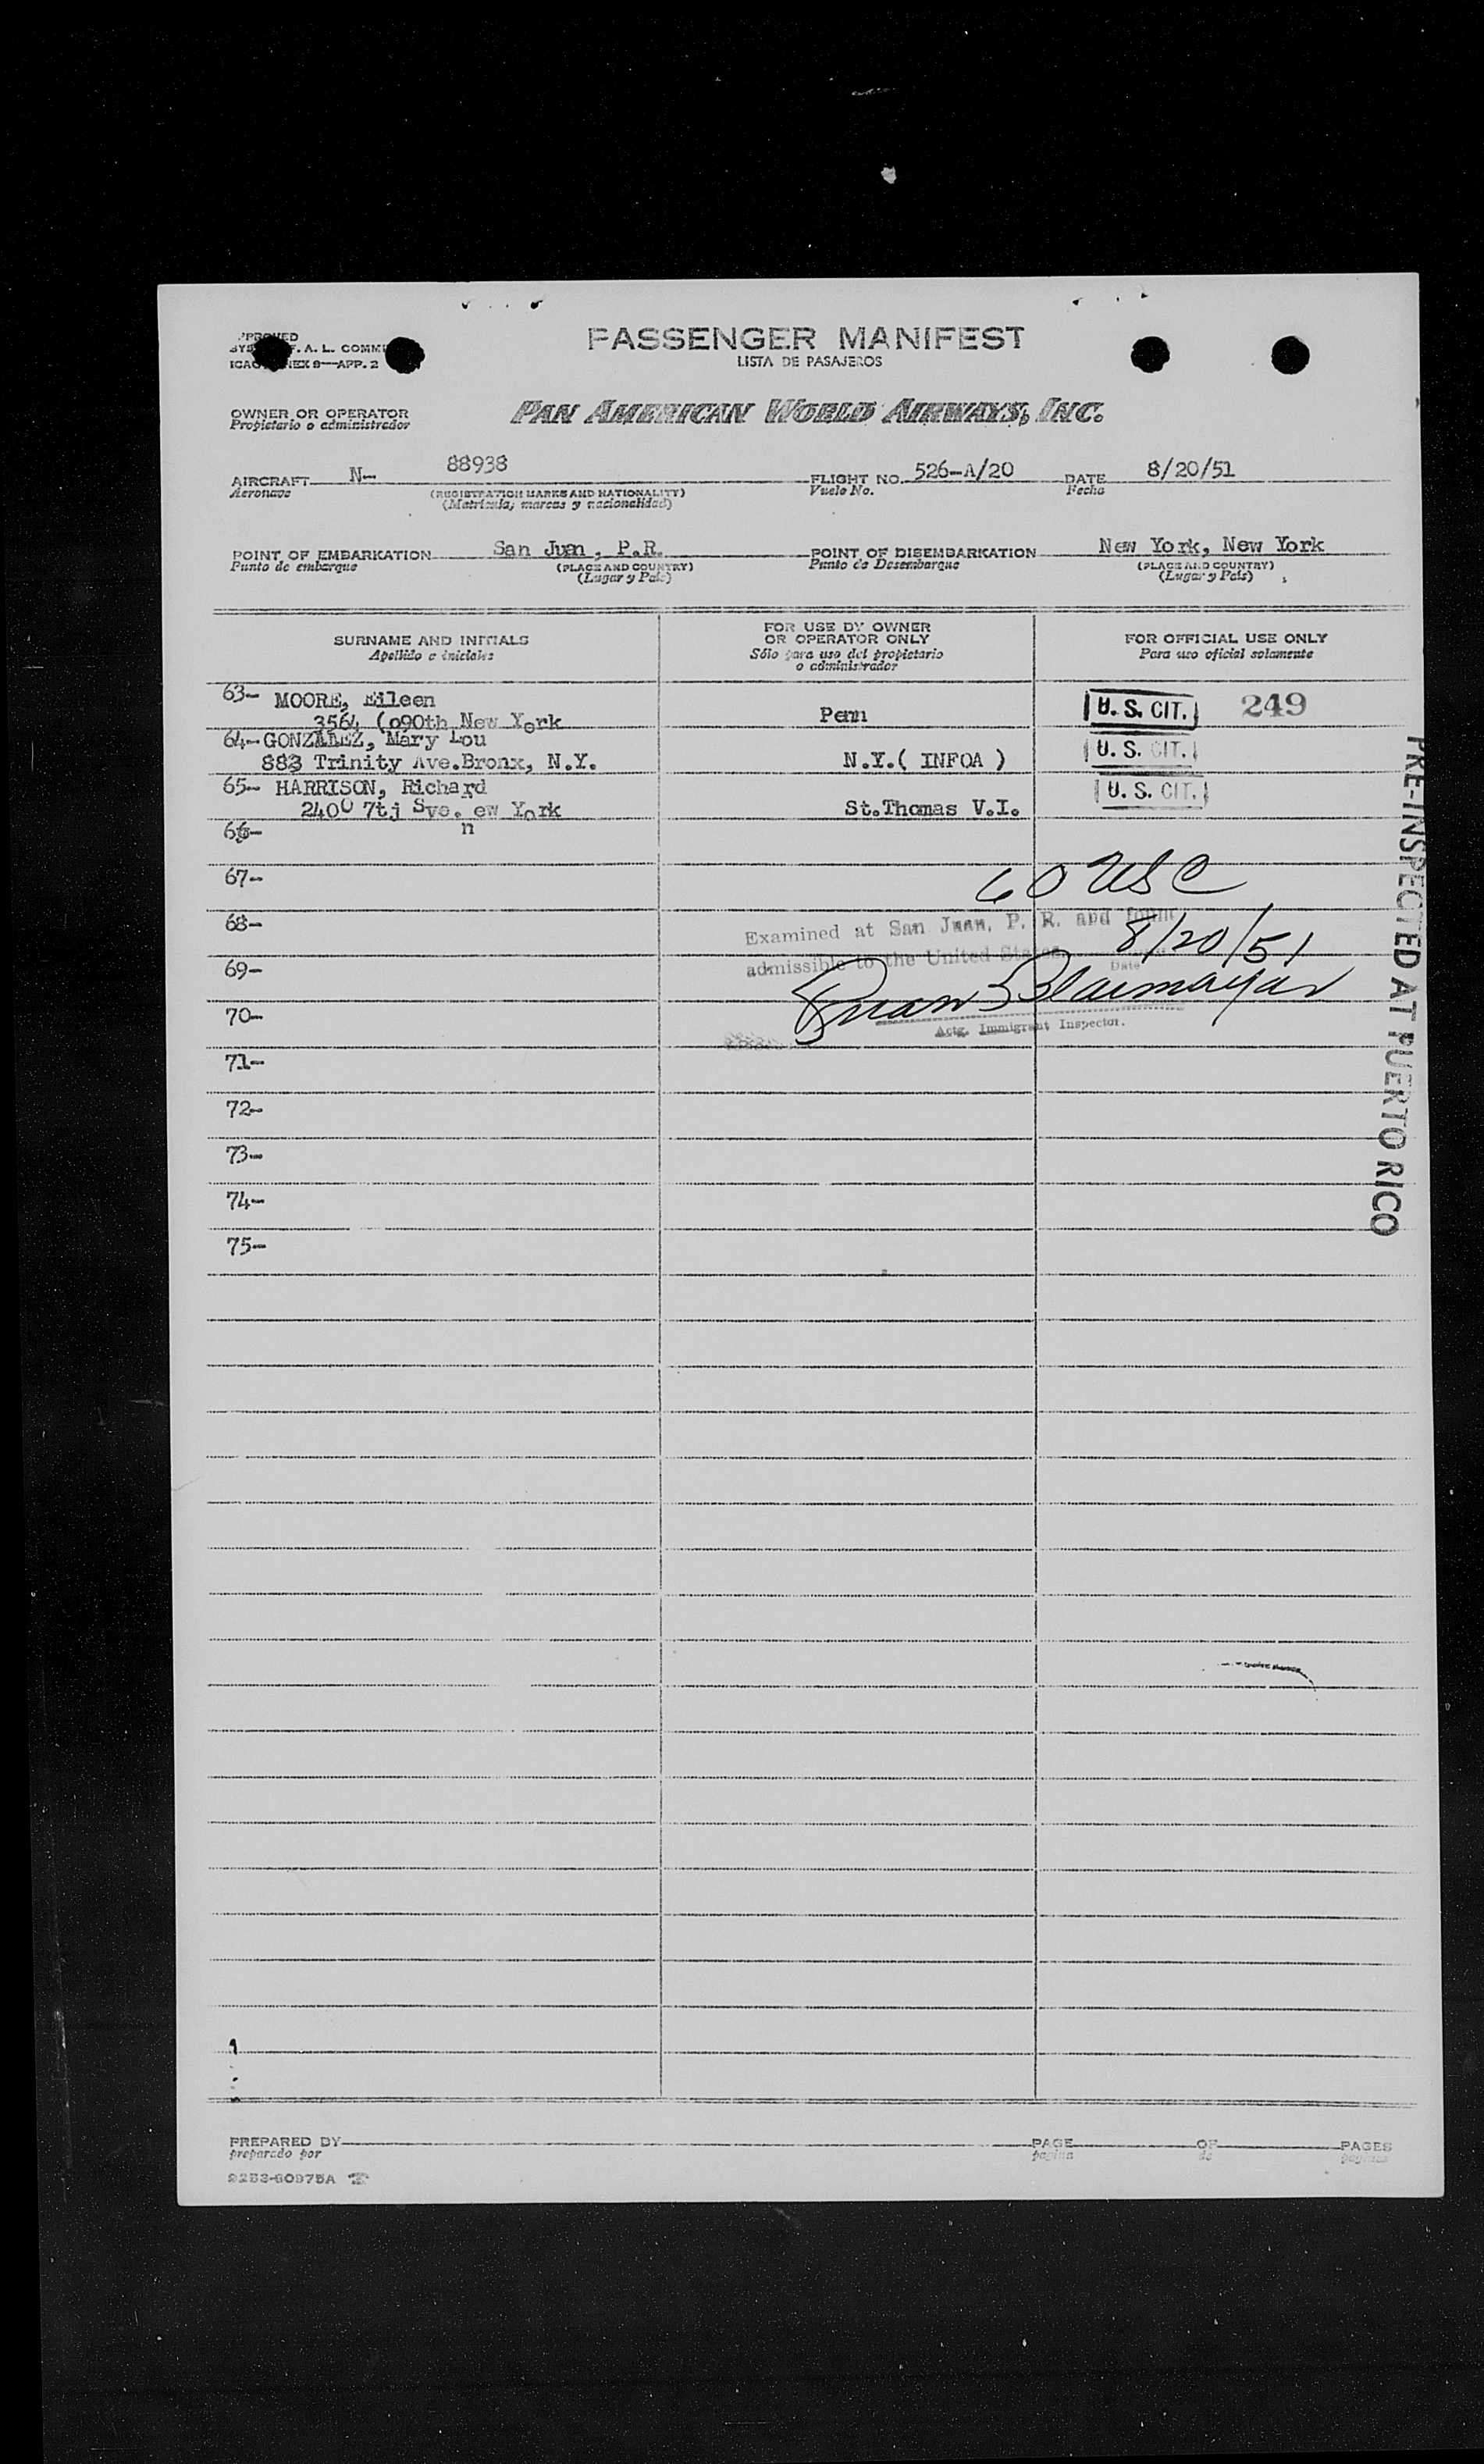 PASSENGER MANIFEST
LISTA DE PASAJEROS
F. A. L. COMMI
ICAO NEX 9—APP. 2
OWNER OR OPERATOR
Propietario o administrador
PAN AMERICAN WORLD AIRWAYS, INC.
AIRCRAFT N- 88938 FLIGHT NO. 526-A/20 DATE 8/20/51
Aeronave (REGISTRATION MARKS AND NATIONALITY) Vuelo No. Fecha
(Matrícula, marcas y nacionalidad)
POINT OF EMBARKATION San Juan, P.R. POINT OF DISEMBARKATION New York, New York
Punto de embarque (PLACE AND COUNTRY) Punto de Desembarque (PLACE AND COUNTRY)
(Lugar y País) (Lugar y País)
SURNAME AND INITIALS
Apellido e iniciales
FOR USE BY OWNER
OR OPERATOR ONLY
Sólo para uso del propietario
o administrador
FOR OFFICIAL USE ONLY
Para uso oficial solamente
63- MOORE, Eileen
3564 (o90th New York Penn U. S. CIT. 249
64- GONZALEZ, Mary Lou
883 Trinity Ave.Bronx, N.Y. N.Y.( INFOA ) U. S. CIT.
65- HARRISON, Richard
2400 7tj Sve. ew York St.Thomas V.I. U. S. CIT.
66- n
67-
60 USC
68-
Examined at San Juan, P. R. and found
8/20/51
69-
admissible to the United States
Date
70-
Actg. Immigrant Inspector.
71-
72-
73-
74-
75-
PRE-INSPECTED AT PUERTO RICO
PREPARED BY PAGE OF PAGES
preparado por pagina de paginas